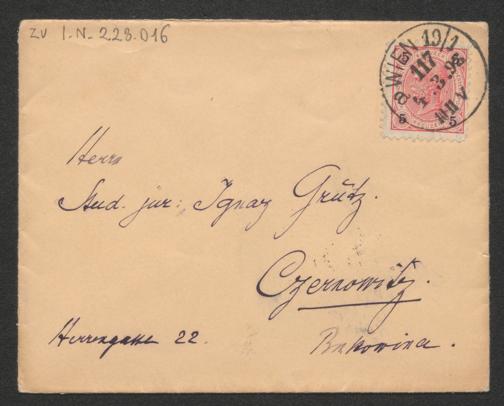 ZU I.N. 228.016
WIEN 19/1
117
4.3.98
5 5
Herrn
Stud. jur: Ignaz Grütz.
Czernowitz.
Herrengasse 22.
Bukowina.